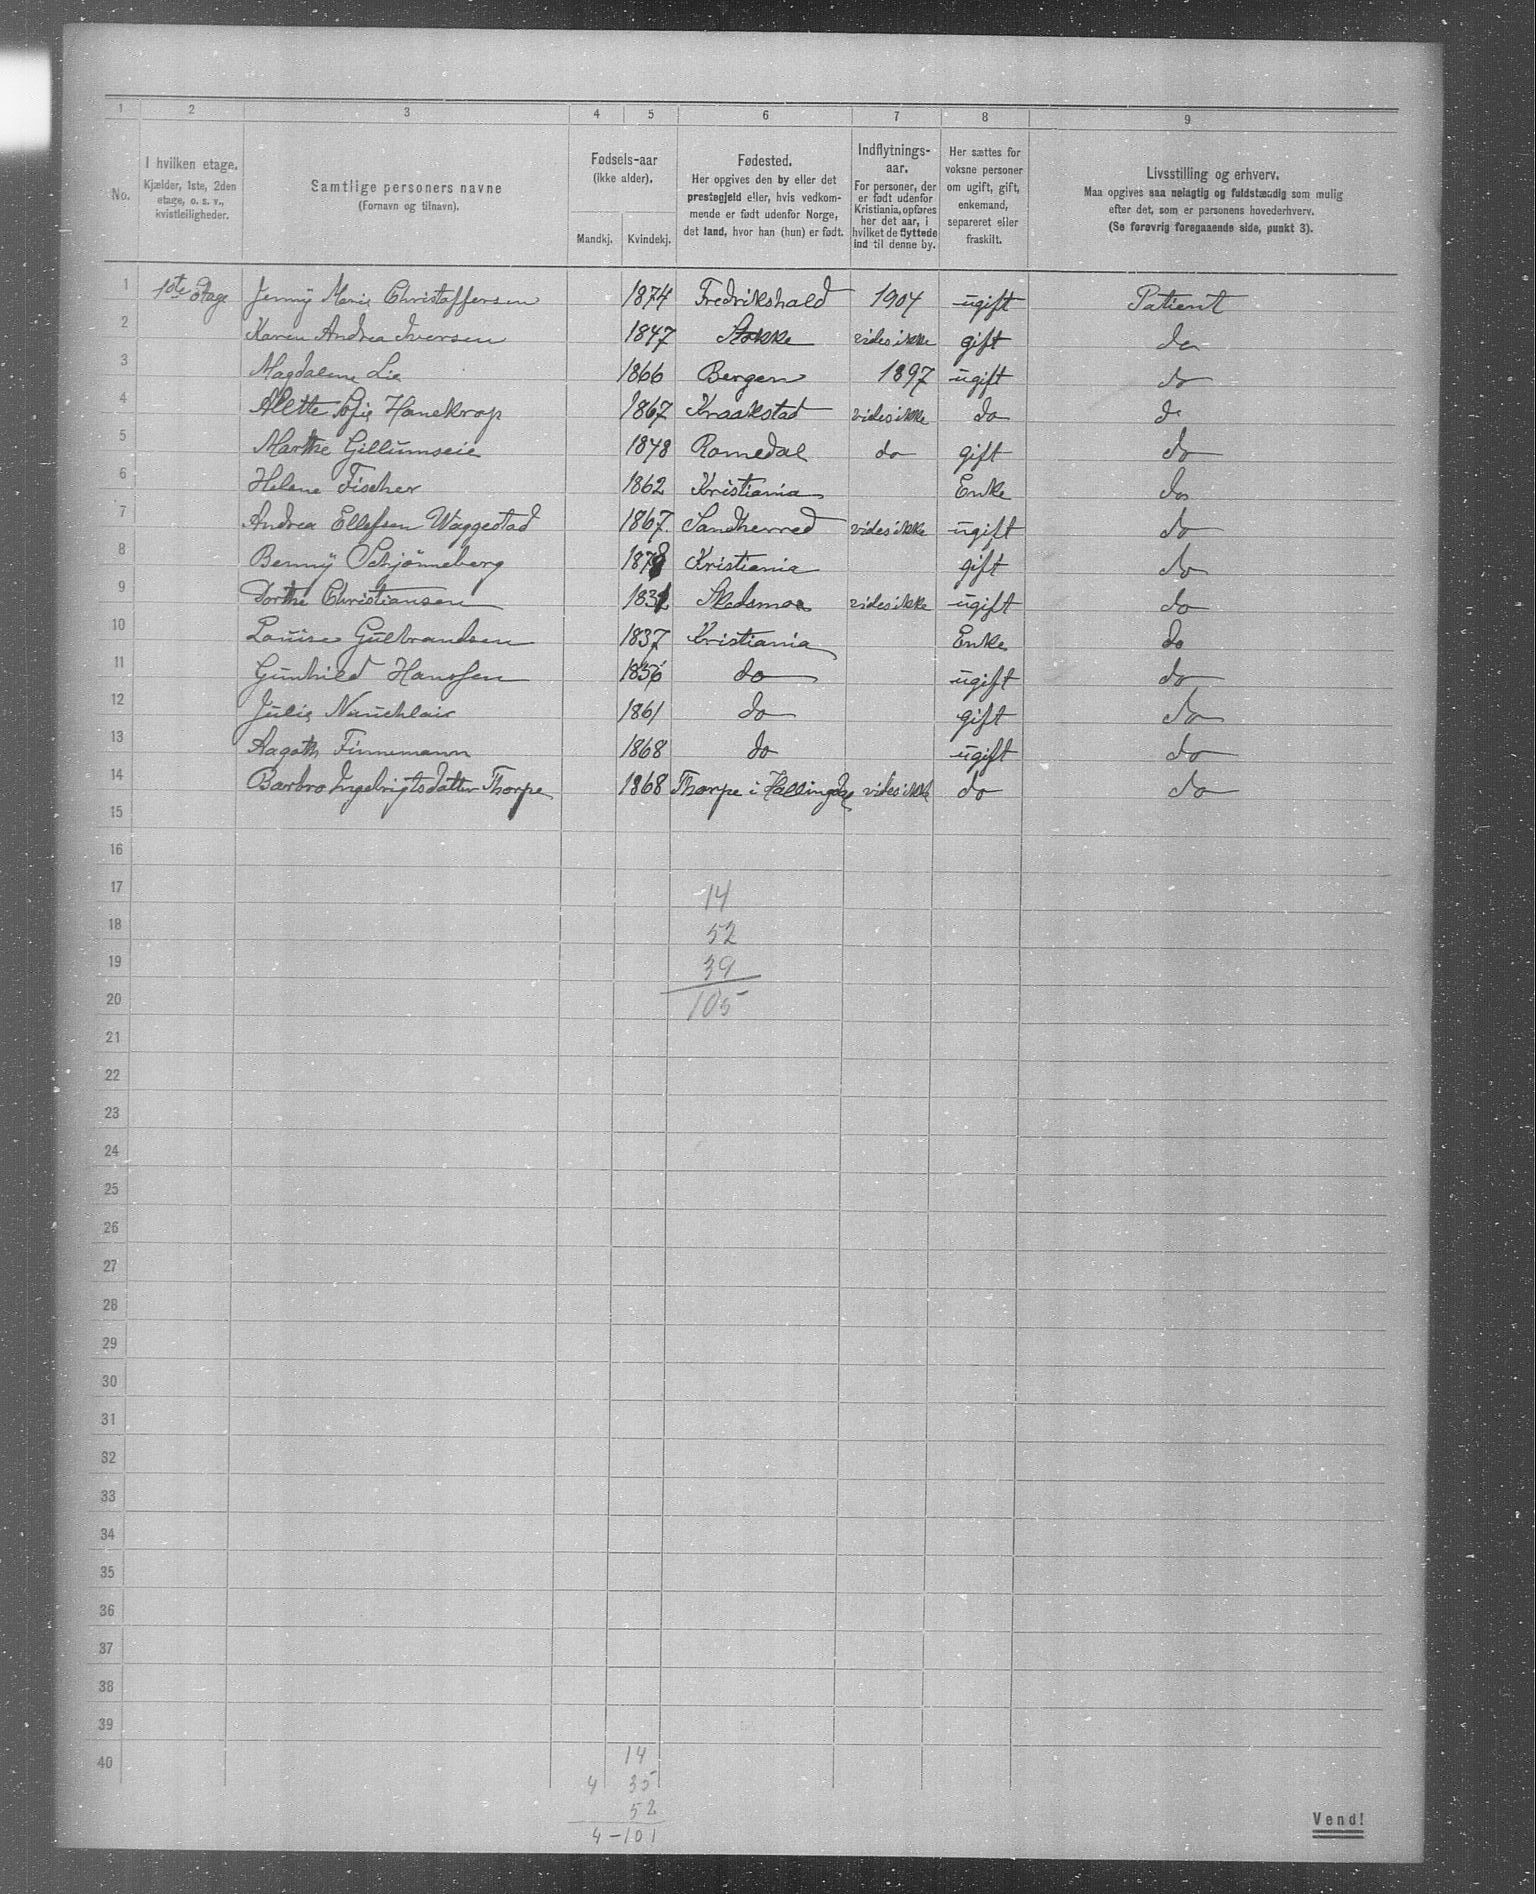 1 2 3 4 5 6 7 8 9
No.
I hvilken etage.
Kjælder, 1ste, 2den
etage, o. s. v.,
kvistleiligheder.
Samtlige personers navne
(Fornavn og tilnavn).
Fødsels-aar
(ikke alder).
Mandkj. Kvindekj.
Fødested.
Her opgives den by eller det
prestegjeld eller, hvis vedkom-
mende er født udenfor Norge,
det land, hvor han (hun) er født.
Indflytnings-
aar.
For personer, der
er født udenfor
Kristiania, opføres
her det aar, i
hvilket de flyttede
ind til denne by.
Her sættes for
voksne personer
om ugift, gift,
enkemand,
separeret eller
fraskilt.
Livsstilling og erhverv.
Maa opgives saa nøiagtig og fuldstændig som mulig
efter det, som er personens hovederhverv.
(Se forøvrig foregaaende side, punkt 3).
1 1ste Etage Jenny Marie Christoffersen 1874 Fredrikshald 1904 ugift Patient
2 Karen Andrea Iversen 1847 Stokke vides ikke gift do
3 Magdalene Lie 1866 Bergen 1897 ugift do
4 Alette Sofie Hanekrog 1867 Kraakstad vides ikke do do
5 Marthe Gillumseie 1848 Romedal do gift do
6 Helene Fischer 1862 Kristiania Enke do
7 Andrea Ellefsen Waggestad 1867. Sandherred vides ikke ugift do
8 Benny Schjønneberg 1878 Kristiania gift do
9 Dorthe Christiansen Skedsmoe vides ikke ugift do
10 Louise Gulbrandsen 1837 Kristiania Enke do
11 Gunhild Hanssen 1856 do ugift do
12 Julie 1861 do gift do
13 Aagoth Finnemann 1868 do ugift do
14 Barbro Ingebrigtsdatter Thorpe 1868 Thorpe i Hallingdal vides ikke do do
15
16
17 14
18 52
19 39
20 105
21
22
23
24
25
26
27
28
29
30
31
32
33
34
35
36
37
38
39
40
14
4 35
52
4-101
Vend!